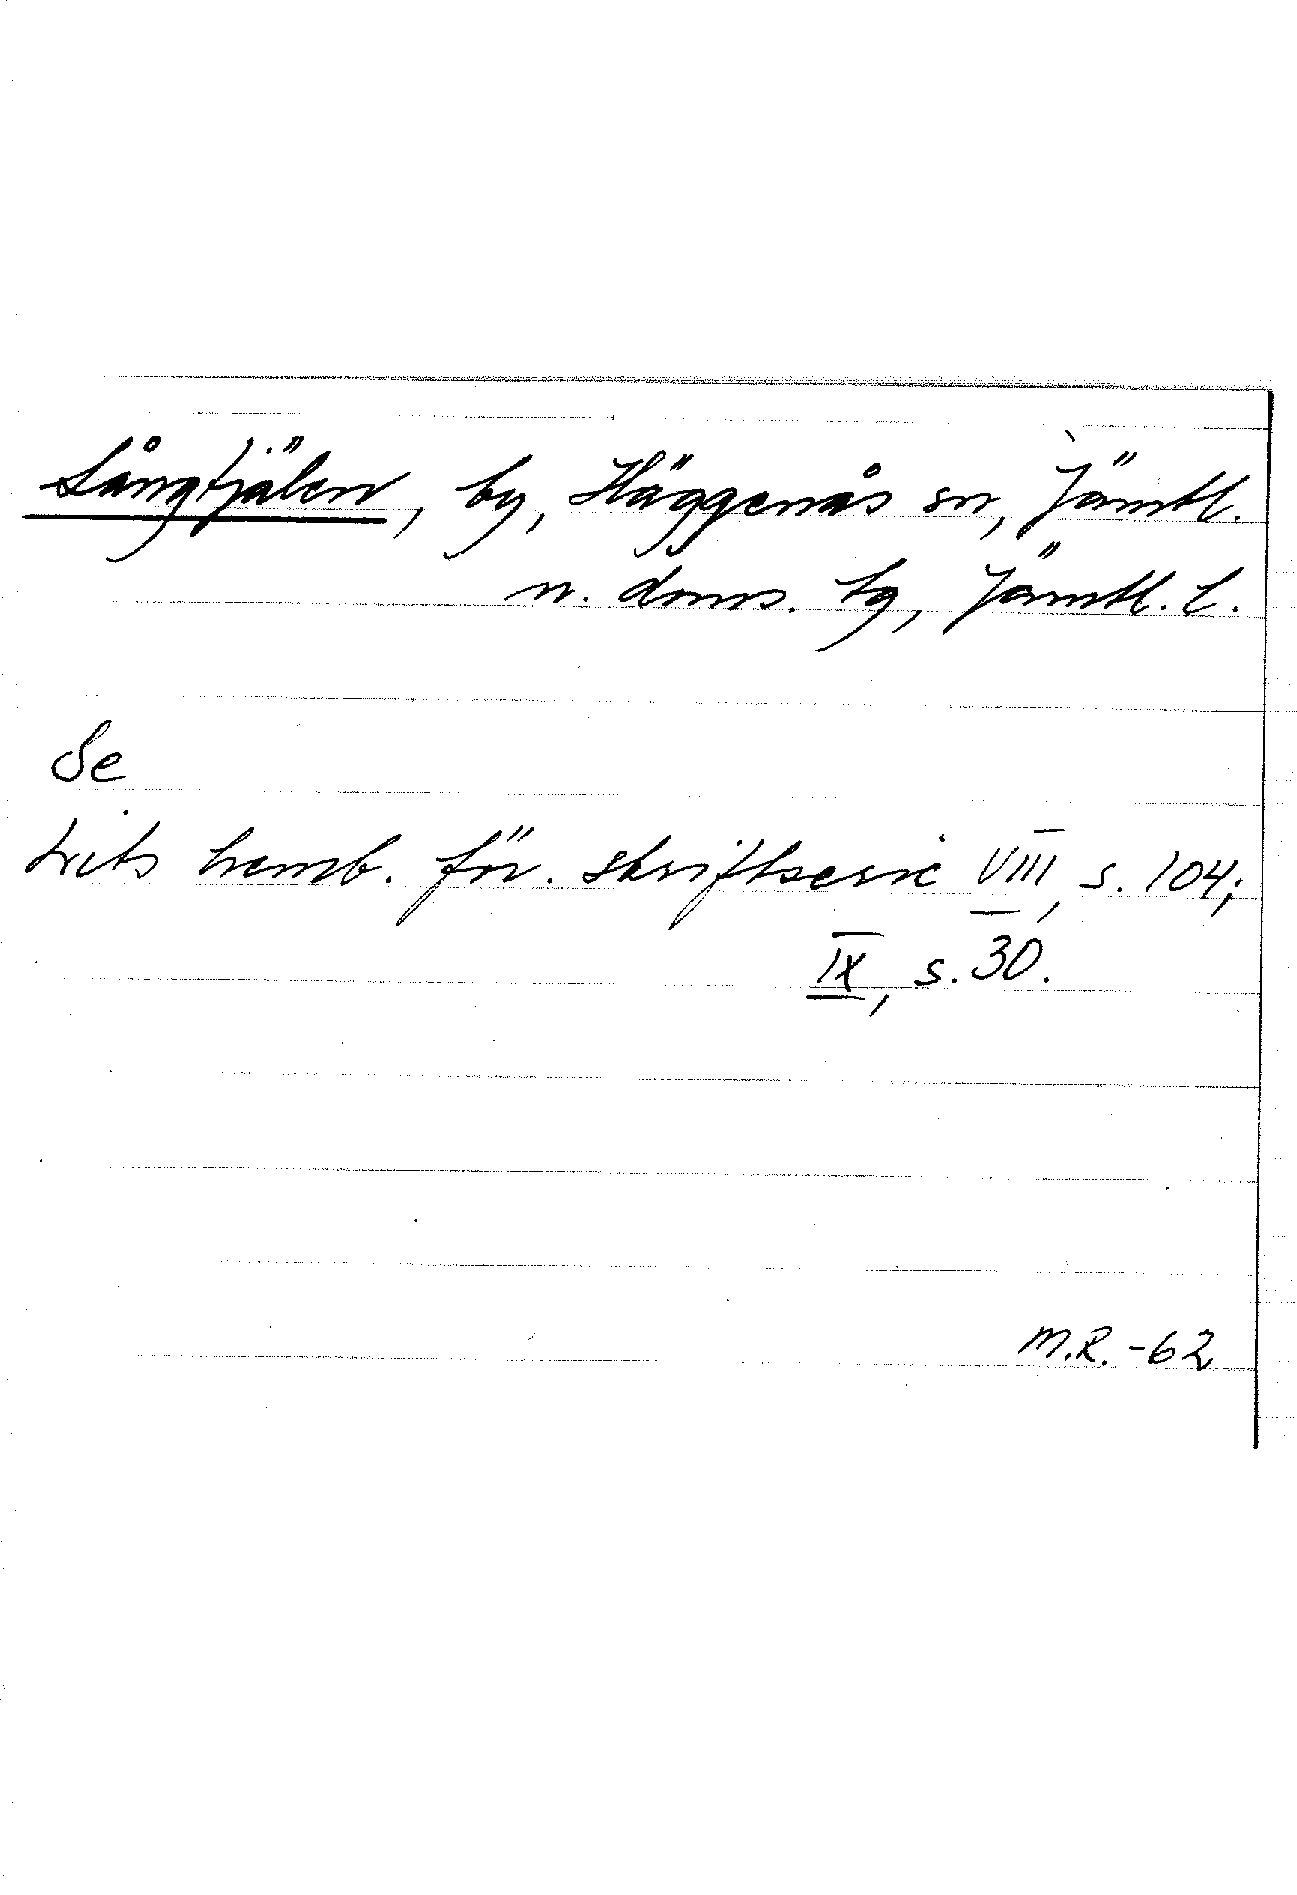 Långtjälen, by, Häggenås sn, Jämtl.
n. doms. tg, Jämtl. l.
Se
Lits hemb. för. skriftserie VIII, s. 104;
IX, s. 30.
M.R. -62